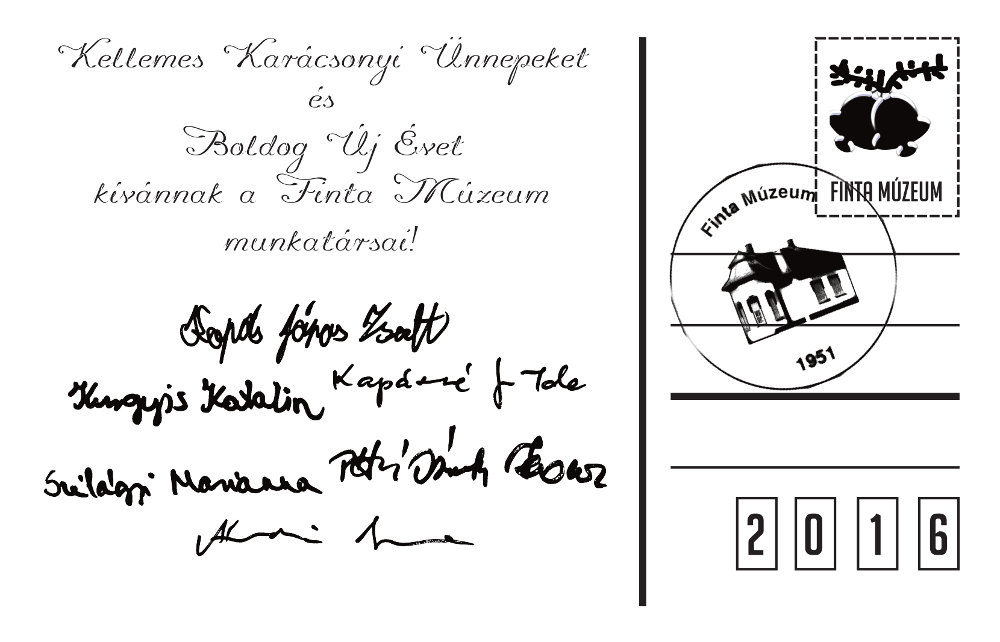 Kellemes Karácsonyi Ünnepeket
és
Boldog Új Évet
kívánnak a Finta Múzeum
munkatársai!
János Zsolt
Kurgyis Katalin
Szilágyi Marianna
FINTA MÚZEUM
Finta Múzeum
1951
2 0 1 6